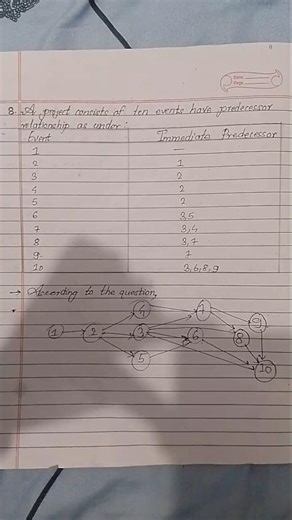 Date
Page
8. A project consists of ten events have predecessor
relationship as under:
Event Immediate Predecessor
1 —
2 1
3 2
4 2
5 2
6 3,5
7 3,4
8 3,7
9 7
10 3,6,8,9
→ According to the question,
4 7
9
1 2 3 6 8
5
10